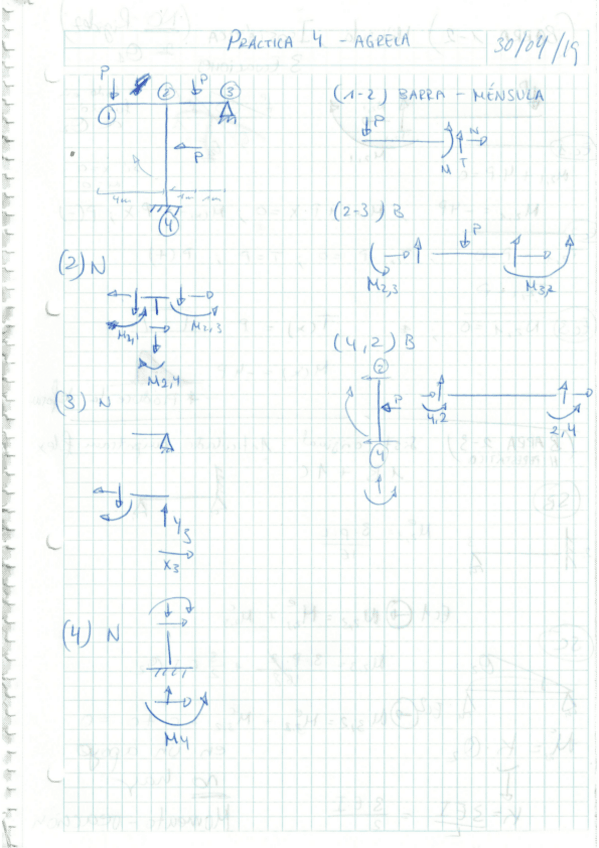 PRÁCTICA 4 - AGRELA
30/04/19
P
2
P
3
1
P
4m
1m
1m
4
(1-2) BARRA - MÉNSULA
P
N
M
T
(2-3) B
P
M2,3
M3,2
(2) N
M2,1
M2,3
M2,4
(4,2) B
2
P
4,2
2,4
4
(3) N
Y3
X3
(4) N
M4